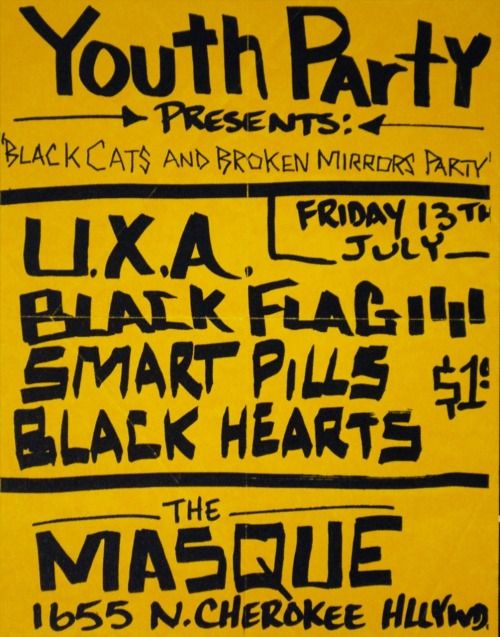 Youth Party
PRESENTS:
'BLACK CATS AND BROKEN MIRRORS PARTY'
FRIDAY 13TH
JULY
U.X.A.
BLACK FLAG
SMART PILLS
$1
BLACK HEARTS
THE
MASQUE
1655 N. CHEROKEE HLLYWD.